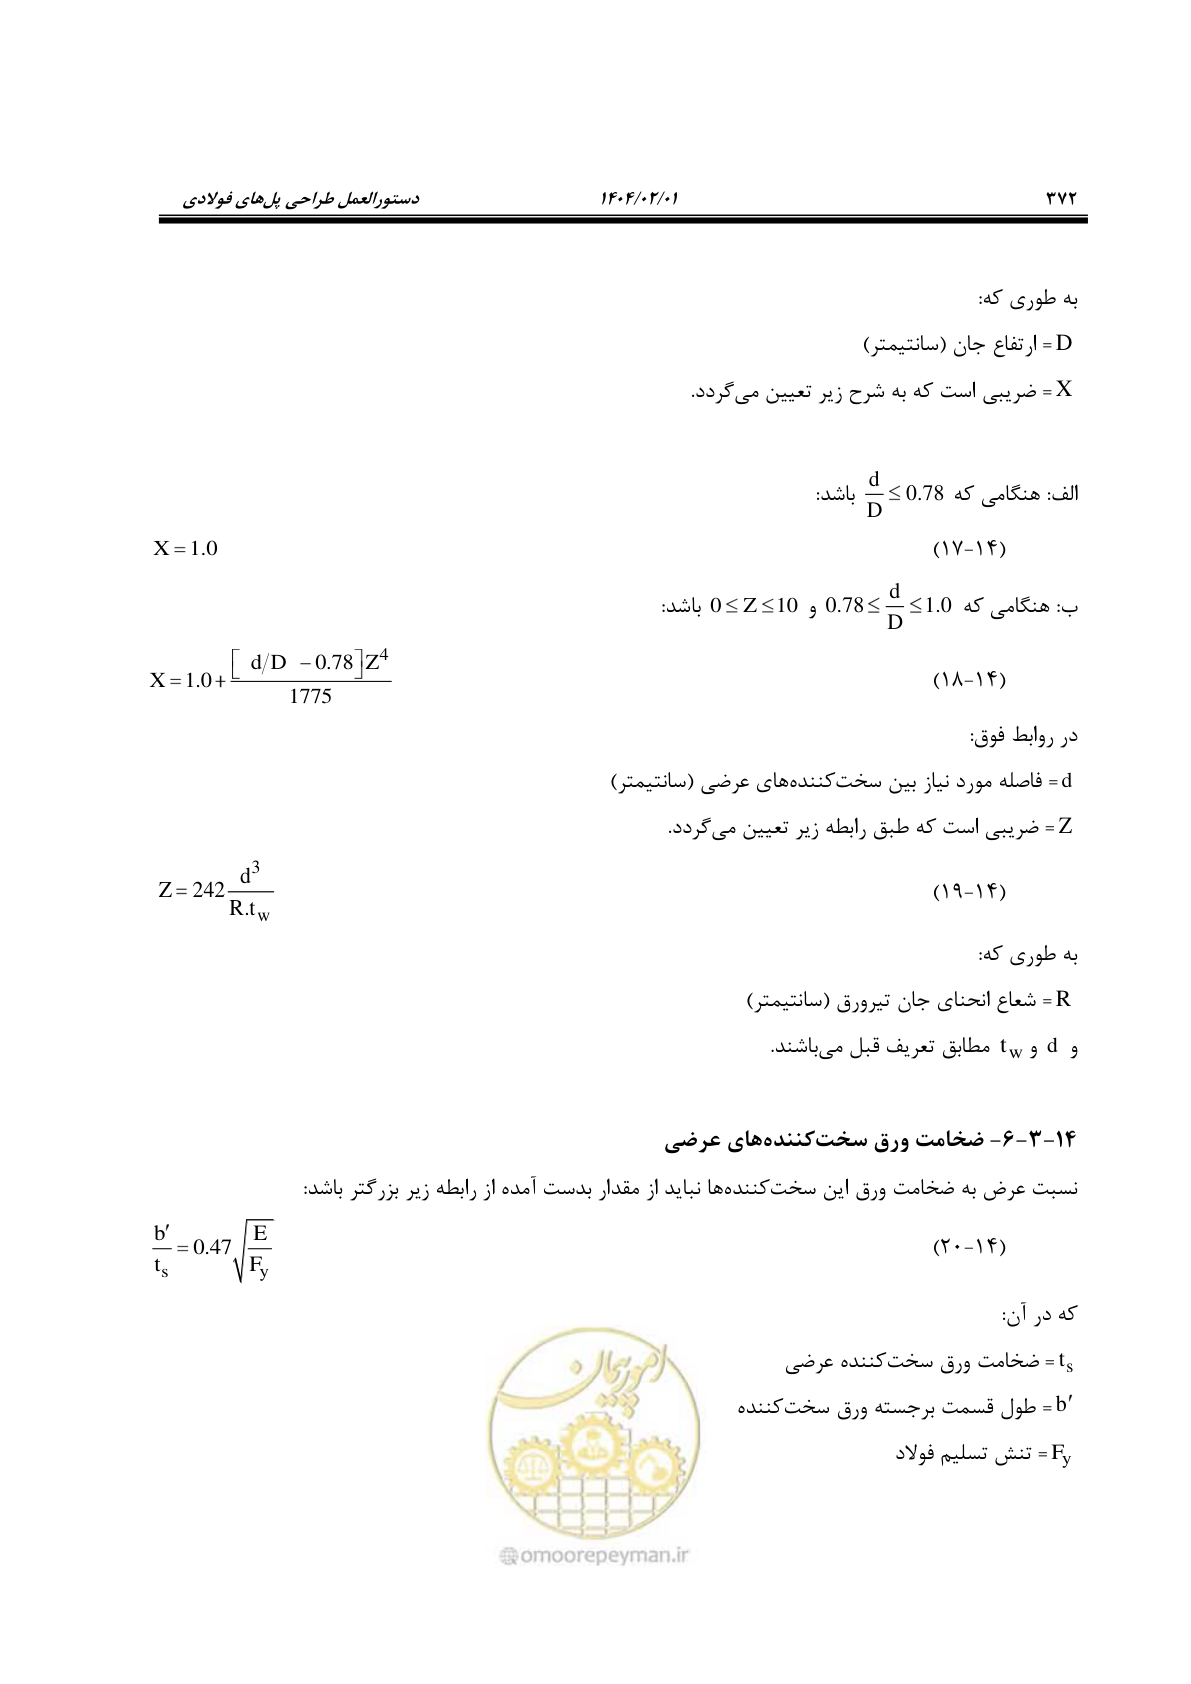 ۳۷۲ ۱۴۰۴/۰۲/۰۱ دستورالعمل طراحی پل‌های فولادی
به طوری که:
D = ارتفاع جان (سانتیمتر)
X = ضریبی است که به شرح زیر تعیین می‌گردد.
الف: هنگامی که d/D ≤ 0.78 باشد:
X = 1.0 (۱۷-۱۴)
ب: هنگامی که 0.78 ≤ d/D ≤ 1.0 و 0 ≤ Z ≤ 10 باشد:
X = 1.0 + [d/D − 0.78]Z⁴ / 1775 (۱۸-۱۴)
در روابط فوق:
d = فاصله مورد نیاز بین سخت‌کننده‌های عرضی (سانتیمتر)
Z = ضریبی است که طبق رابطه زیر تعیین می‌گردد.
Z = 242 d³ / R.t_w (۱۹-۱۴)
به طوری که:
R = شعاع انحنای جان تیرورق (سانتیمتر)
و d و t_w مطابق تعریف قبل می‌باشند.
۱۴-۳-۶- ضخامت ورق سخت‌کننده‌های عرضی
نسبت عرض به ضخامت ورق این سخت‌کننده‌ها نباید از مقدار بدست آمده از رابطه زیر بزرگتر باشد:
b′/t_s = 0.47 √(E/F_y) (۲۰-۱۴)
که در آن:
t_s = ضخامت ورق سخت‌کننده عرضی
b′ = طول قسمت برجسته ورق سخت‌کننده
F_y = تنش تسلیم فولاد
امور پیمان
@omoorepeyman.ir